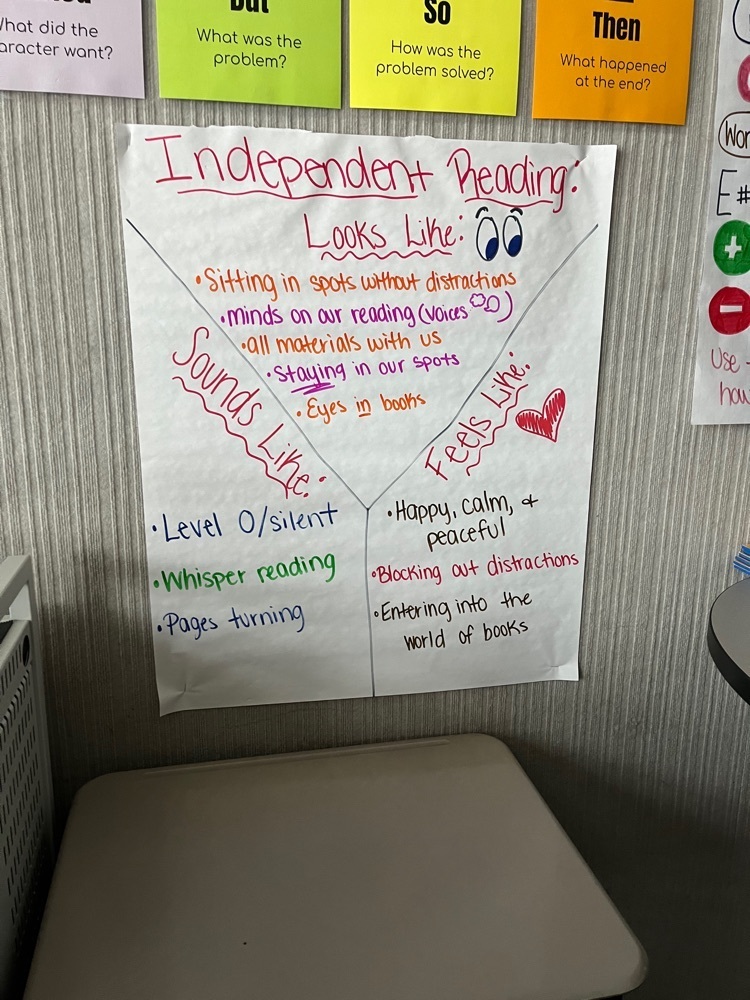 What did the
character want?
But
What was the
problem?
So
How was the
problem solved?
Then
What happened
at the end?
Independent Reading:
Looks Like:
•Sitting in spots without distractions
•minds on our reading (voices )
•all materials with us
•Staying in our spots
•Eyes in books
Sounds Like:
•Level 0/silent
•Whisper reading
•Pages turning
Feels Like:
•Happy, calm, &
peaceful
•Blocking out distractions
•Entering into the
world of books
E#
+
−
Use
how